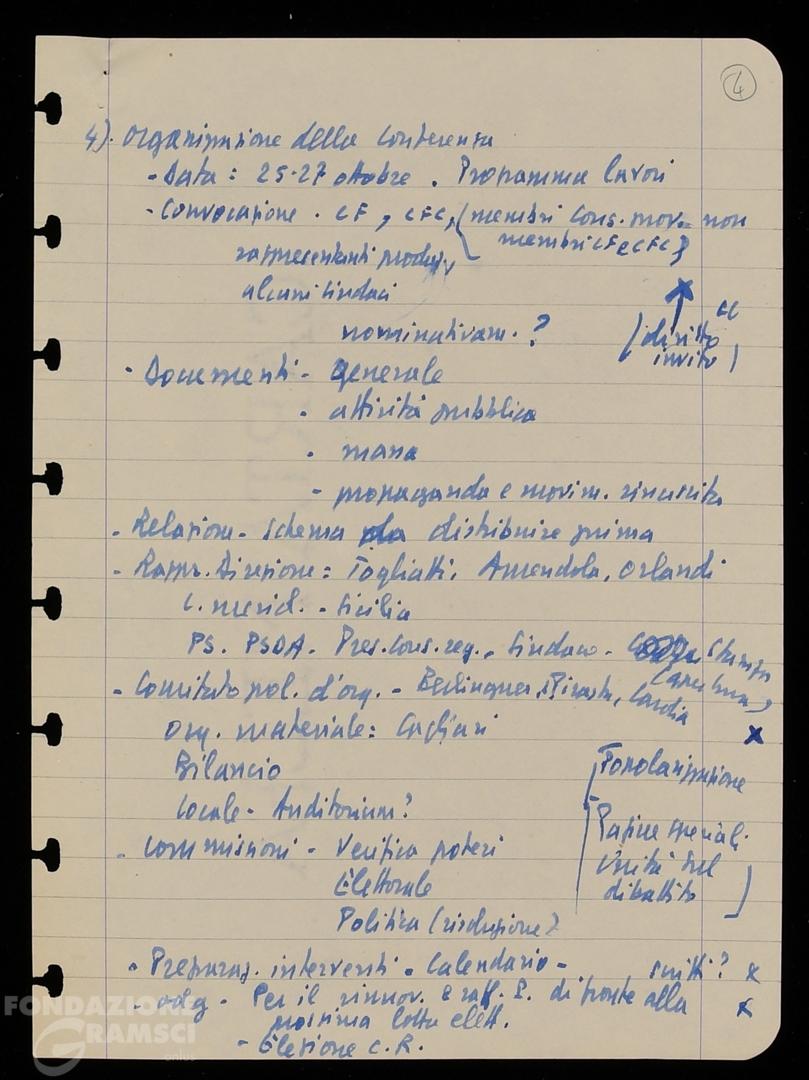 4
4). Organizzazione della Conferenza
- Data: 25-27 ottobre. Programma lavori
- Convocazione. CF, CFC, (membri Cons. mov. non
membri CF e CFC)
rappresentanti
alcuni sindaci
nominativam.?
(diritto
invito)
- Documenti - generale
- attività pubblica
- massa
- propaganda e movim. rinascita
- Relazione - schema da distribuire prima
- Rappr. Direzione: Togliatti, Amendola, Orlandi
C. merid. - Sicilia
PS. PSDA. Pres. Cons. reg., Sindaco - Stampa
- Comitato pol. d'org. - Berlinguer, Pirastu, Cardia
Org. materiale: Cagliari
Bilancio
Locale - Auditorium?
Popolarizzazione
Pagine speciali
Unità sul
dibattito
- Commissioni - Verifica poteri
Elettorale
Politica (risoluzione)
- Preparaz. interventi - Calendario - scritti? x
- odg - Per il rinnov. e raff. P. di fronte alla x
prossima lotta elett.
- Elezione C.R.
FONDAZIONE
GRAMSCI
onlus